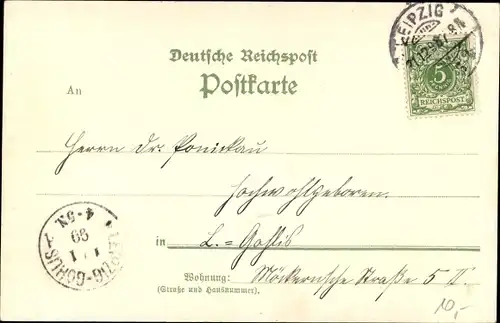 LEIPZIG
Deutsche Reichspost
Postkarte
5
REICHSPOST
An
Herrn Dr. Ponickau
Hochwohlgeboren.
in L.=Gohlis
Wohnung: Möckernsche Straße 5 II.
(Straße und Hausnummer).
LEIPZIG-GOHLIS
1 1
99
4-5N.
10,-